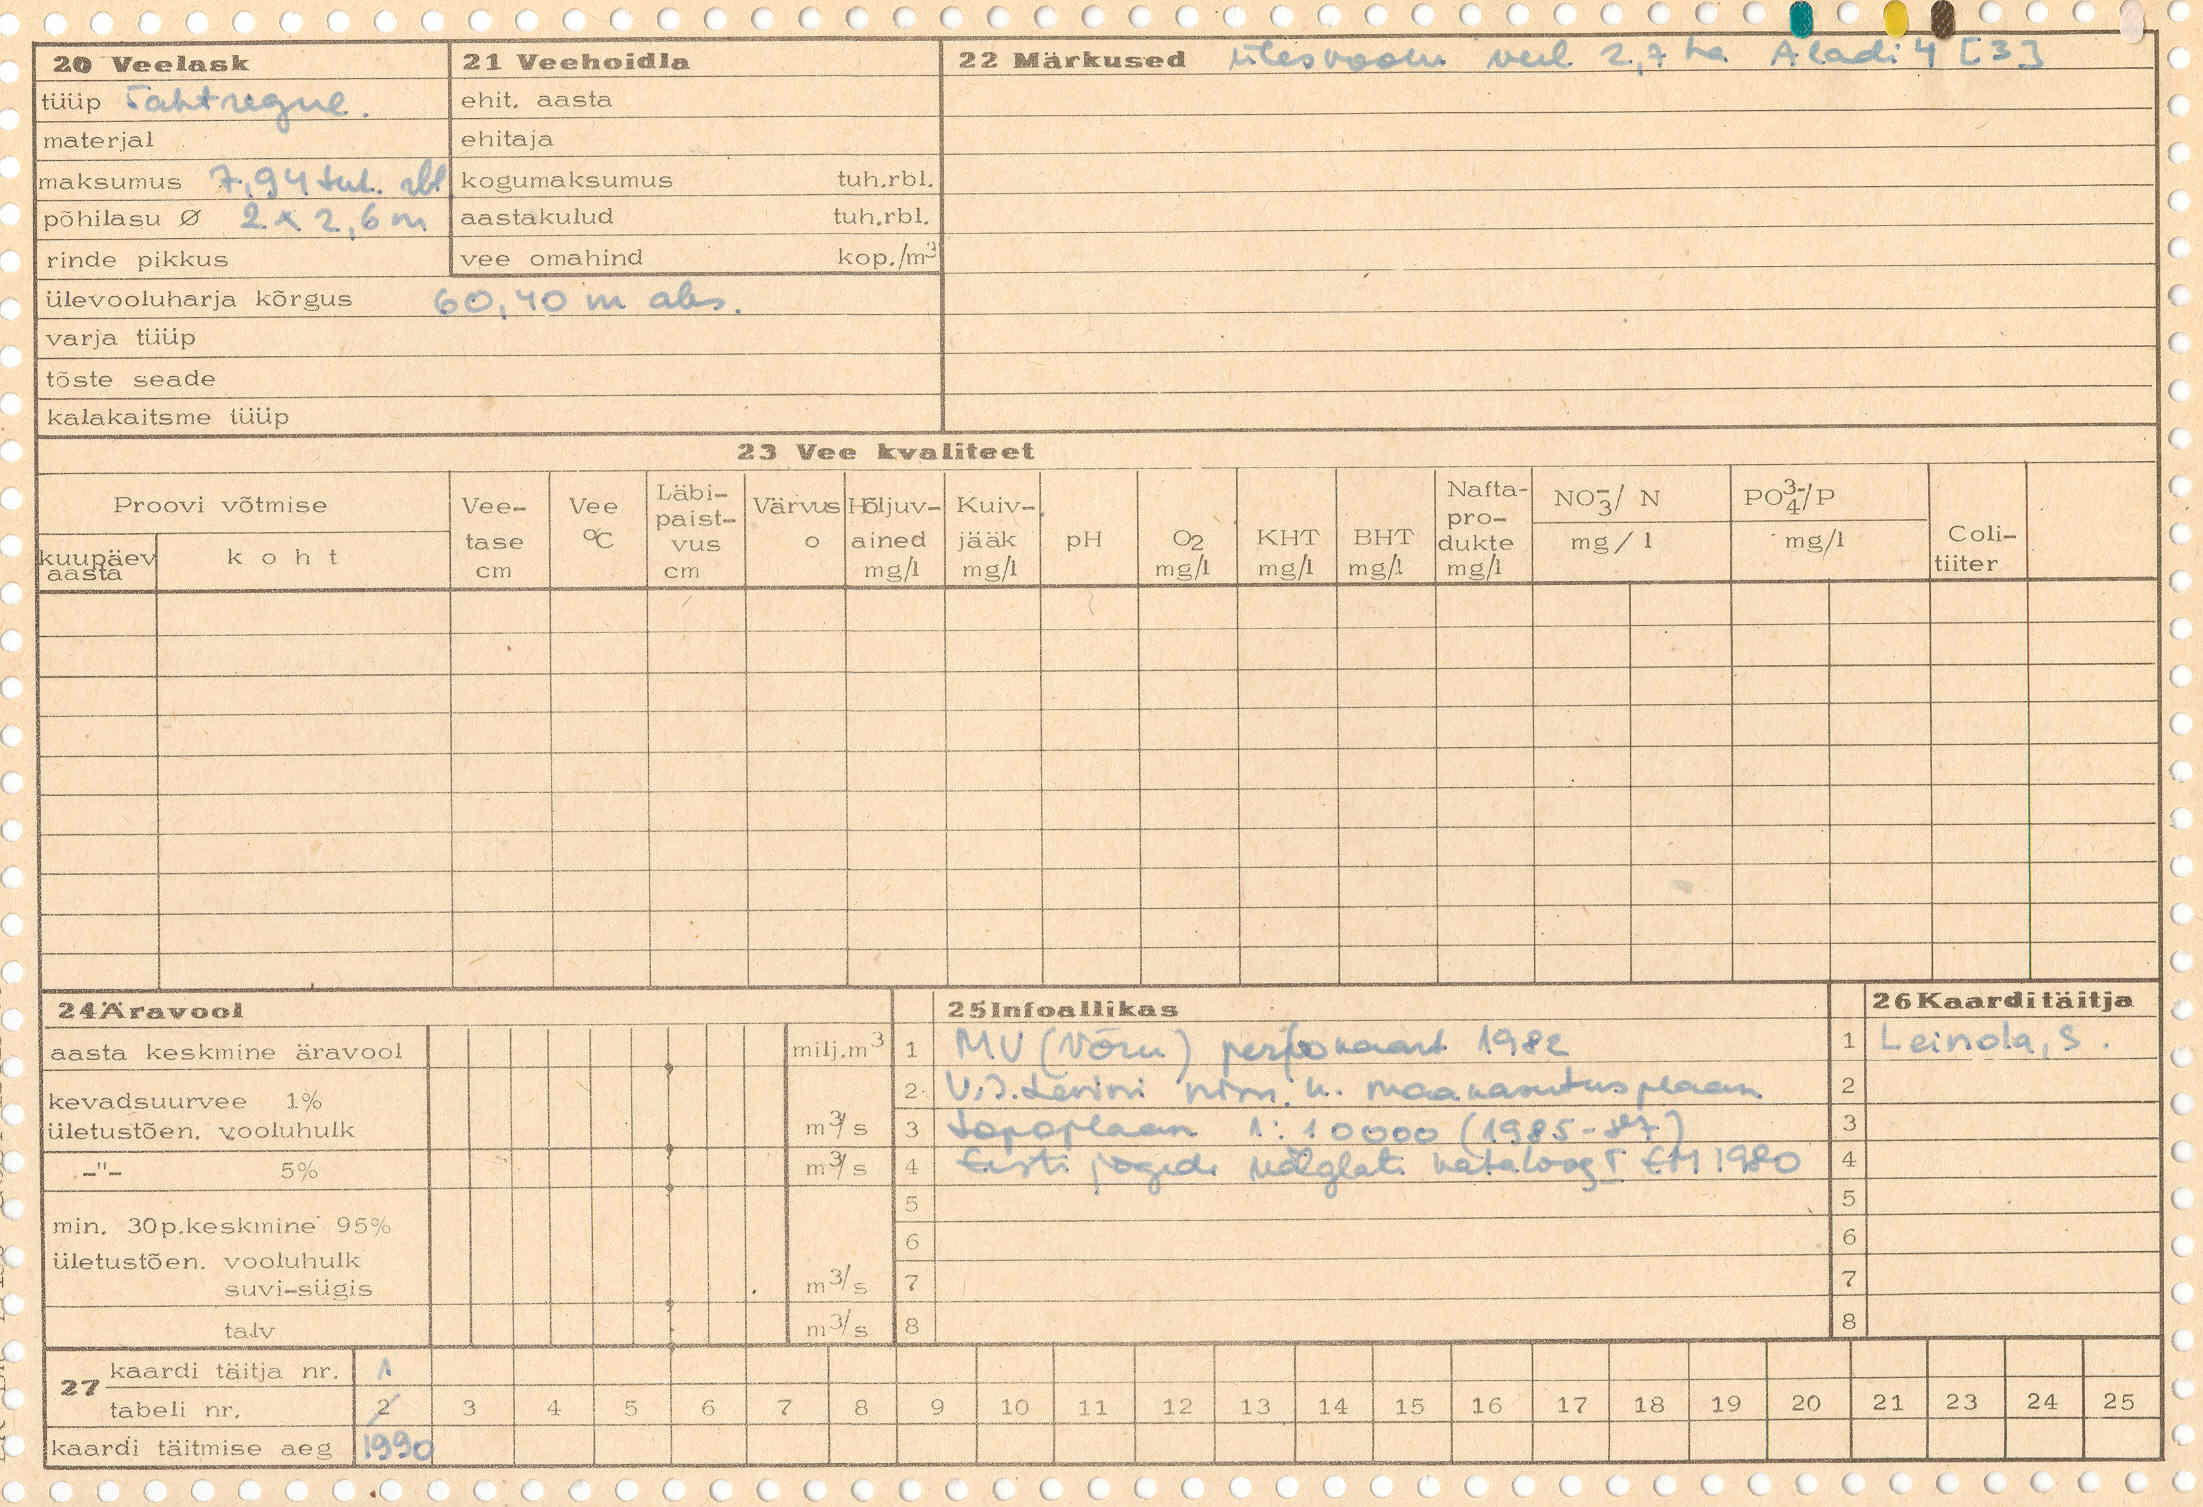 20 Veelask
tüüp Tahtregul.
materjal
maksumus 7,94 tuh. rbl
põhilasu Ø 2 x 2,6 m
rinde pikkus
ülevooluharja kõrgus 60,40 m abs.
varja tüüp
tõste seade
kalakaitsme tüüp
21 Veehoidla
ehit. aasta
ehitaja
kogumaksumus tuh.rbl.
aastakulud tuh.rbl.
vee omahind kop./m3
22 Märkused ülesvoolu veel 2,7 ha Aladi 4 [3]
23 Vee kvaliteet
Proovi võtmise
kuupäev aasta
koht
Vee-tase cm
Vee °C
Läbi-paist-vus cm
Värvus o
Hõljuv-ained mg/l
Kuiv-jääk mg/l
pH
O2 mg/l
KHT mg/l
BHT mg/l
Nafta-pro-dukte mg/l
NO3-/ N mg/l
PO4 3-/P mg/l
Coli-tiiter
24 Äravool
aasta keskmine äravool milj.m3
kevadsuurvee 1%
ületustõen. vooluhulk m3/s
-"- 5% m3/s
min. 30p.keskmine 95%
ületustõen. vooluhulk
suvi-sügis m3/s
talv m3/s
25 Infoallikas
1 MV (Võru) perfokaart 1982
2 V.I. Lenini nim. k. maakasutusplaan
3 topoplaan 1:10000 (1985-87)
4 Eesti jõgede valglate kataloog I EM 1980
5
6
7
8
26 Kaardi täitja
1 Leinola, S.
2
3
4
5
6
7
8
27
kaardi täitja nr. 1
tabeli nr. 2 3 4 5 6 7 8 9 10 11 12 13 14 15 16 17 18 19 20 21 23 24 25
kaardi täitmise aeg 1990